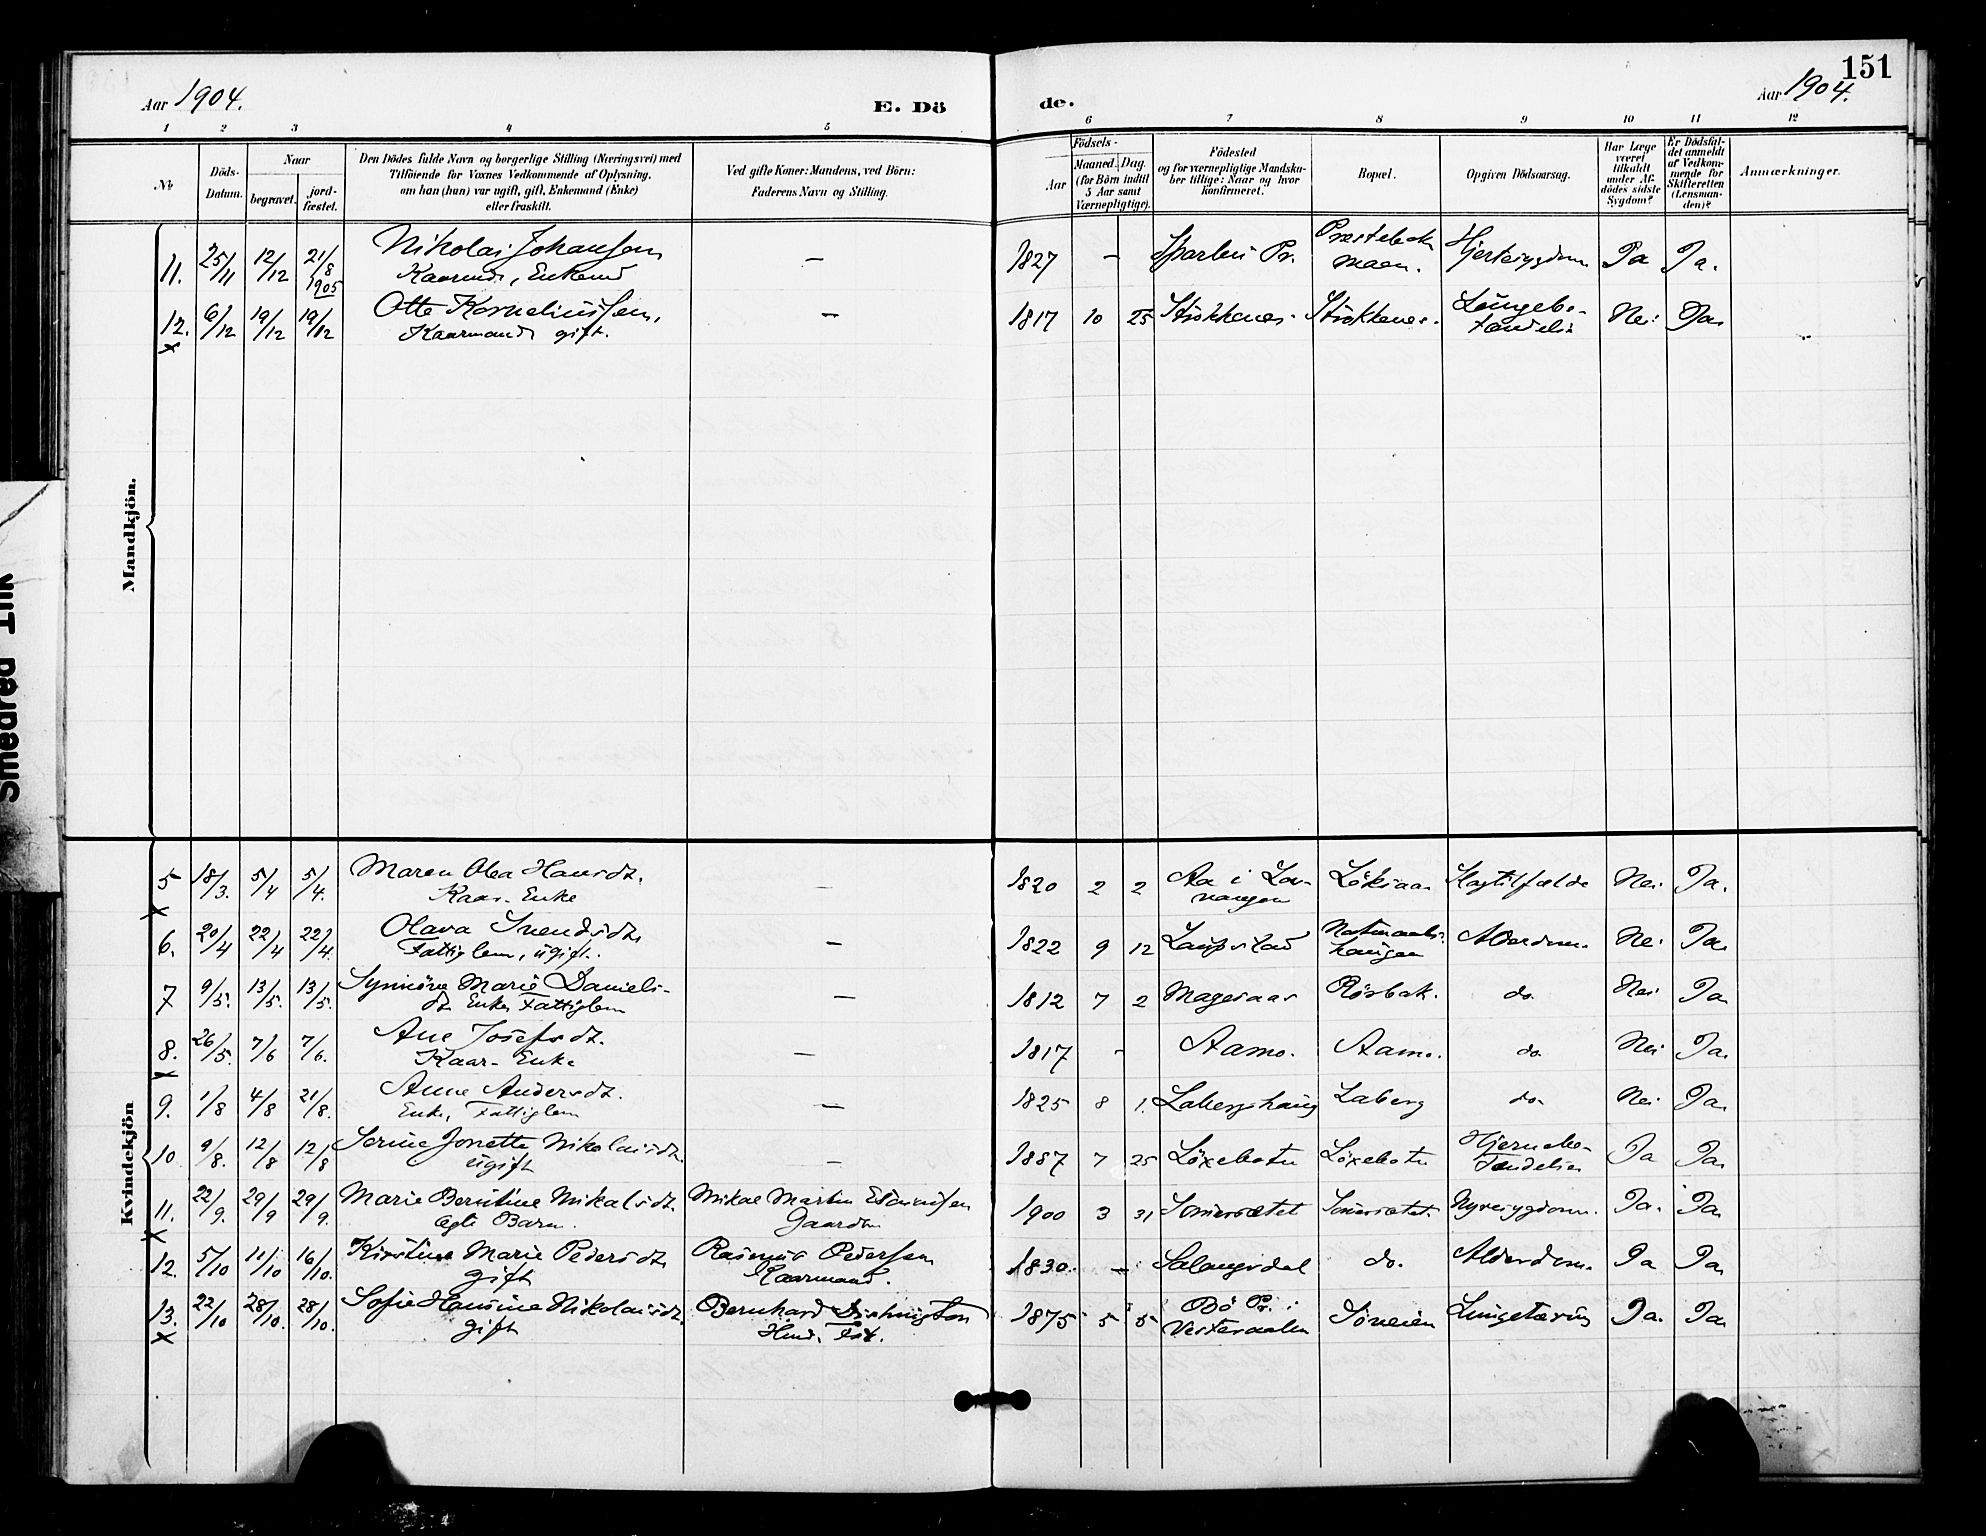 151
Aar 1904.
E. Dö
de.
Aar 1904.
1 2 3 4 5 6 7 8 9 10 11 12
No
Döds-
Datum.
Naar
begravet.
jord-
fæstet.
Den Dödes fulde Navn og borgerlige Stilling (Næringsvei) med
Tilföiende for Voxnes Vedkommende af Oplysning,
om han (hun) var ugift, gift, Enkemand (Enke)
eller fraskilt.
Ved gifte Koner: Mandens, ved Börn:
Faderens Navn og Stilling.
Födsels-
Aar
Maaned. Dag.
(for Börn indtil
5 Aar samt
Værnepligtige).
Födested
og for værnepligtige Mandska-
ber tillige: Naar og hvor
konfirmeret.
Bopæl.
Opgiven Dödsaarsag.
Har Læge
været
tilkaldt
under Af-
dödes sidste
Sygdom?
Er Dödsfal-
det anmeldt
af Vedkom-
mende for
Skifteretten
(Lensman-
den)?
Anmærkninger.
Mandkjön.
11. 25/11 12/12 21/8 1905 Nikolai Johansen — 1827 — Ja Ja.
Kaarmd, Enkemd
12. 6/12 19/12 19/12 Otte Korneliussen, — 1817 10 25 Strokkenes. Strokkenes. Lungebe- Nei Ja
x Kaarmand gift. tændelse
Kvindekjön
5 18/3 5/4 5/4. Maren Olea Hansdt. — 1820 2 2 Aa i La- Löksaa Slagtilfælde Nei Ja.
x Kaar-Enke vangen
6. 20/4 22/4 22/4. Olava Svendsdt. — 1822 9 12 Laupstad Alderdom. Nei Ja
Fattiglem, ugift. haugen
7 9/5. 13/5. 13/5. Synnöve Marie Daniels- — 1812 7 2 Magesaas Rösbak. do. Nei Ja
dt Enke Fattiglem
8. 26/5. 7/6 7/6. Ane Josefsdt. — 1817 - Aamo. Aamo. do. Nei Ja
x Kaar-Enke
9. 1/8 4/8 21/8. Anne Andersdt. — 1825 8 1. Labergshaug Laberg do. Nei Ja
Enke, Fattiglem
10 9/8. 12/8 12/8 Serine Jonette Nikolaisdt. — 1887 7 25 Löxebotn Löxebotn Hjernebe- Ja Ja
ugift tændelse
11. 22/9. 29/9 29/9. Marie Berntine Mikalsdt. Mikal Martin 1900 3 31 Somersætet Somersætet. Nyresygdom. Ja. Ja
x ægte Barn. Gaardm
12. 5/10 11/10 16/10. Kirstine Marie Pedersdt Rasmus Pedersen 1830. — Salangsdal do. Alderdom. Ja Ja
gift Kaarmand.
13. 22/10 28/10. 28/10. Sofie Hansine Nikolaisdt. Bernhard 1875 5 5 Bö Pr. i Söveien Lungetæring Ja. Ja
x gift Vesteraalen